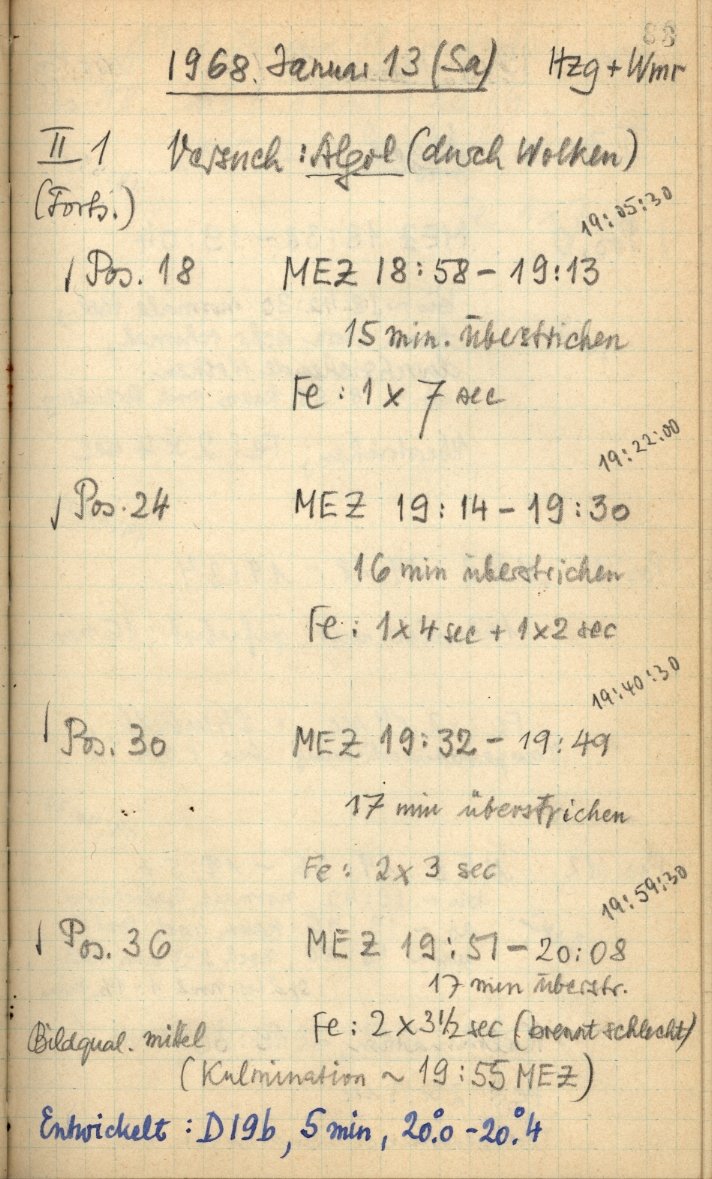 88
1968. Januar 13 (Sa) Hzg + Wmr
II 1 Versuch : Algol (durch Wolken)
(Forts.)
19:05:30
√ Pos. 18 MEZ 18:58 - 19:13
15 min. überstrichen
Fe : 1 x 7 sec
19:22:00
√ Pos. 24 MEZ 19:14 - 19:30
16 min überstrichen
Fe : 1x4 sec + 1x2 sec
19:40:30
√ Pos. 30 MEZ 19:32 - 19:49
17 min überstrichen
Fe : 2x3 sec
19:59:30
√ Pos. 36 MEZ 19:51 - 20:08
17 min überstr.
Fe : 2 x 3 1/2 sec (brennt schlecht)
Bildqual. mittel
(Kulmination ~ 19:55 MEZ)
Entwickelt : D19b, 5 min, 20°.0 - 20°.4